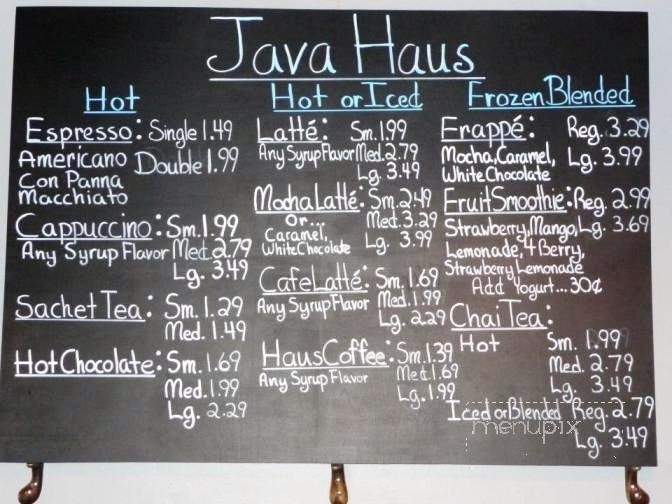 Java Haus
Hot
Espresso: Single 1.49
Americano Double 1.99
Con Panna
Macchiato
Cappuccino: Sm. 1.99
Any Syrup Flavor Med. 2.79
Lg. 3.49
Sachet Tea: Sm. 1.29
Med. 1.49
Hot Chocolate: Sm. 1.69
Med. 1.99
Lg. 2.29
Hot or Iced
Latté: Sm. 1.99
Any Syrup Flavor Med. 2.79
Lg. 3.49
Mocha Latté: Sm. 2.49
Or... Med. 3.29
Caramel,
White Chocolate Lg. 3.99
Cafe Latté: Sm. 1.69
Any Syrup Flavor Med. 1.99
Lg. 2.29
Haus Coffee: Sm. 1.39
Any Syrup Flavor Med. 1.69
Lg. 1.99
Frozen Blended
Frappé: Reg. 3.29
Mocha, Caramel, Lg. 3.99
White Chocolate
Fruit Smoothie: Reg. 2.99
Strawberry, Mango, Lg. 3.69
Lemonade, 4 Berry,
Strawberry Lemonade
Add Yogurt... 30¢
Chai Tea:
Hot Sm. 1.99
Med. 2.79
Lg. 3.49
Iced or Blended Reg. 2.79
Lg. 3.49
menupix